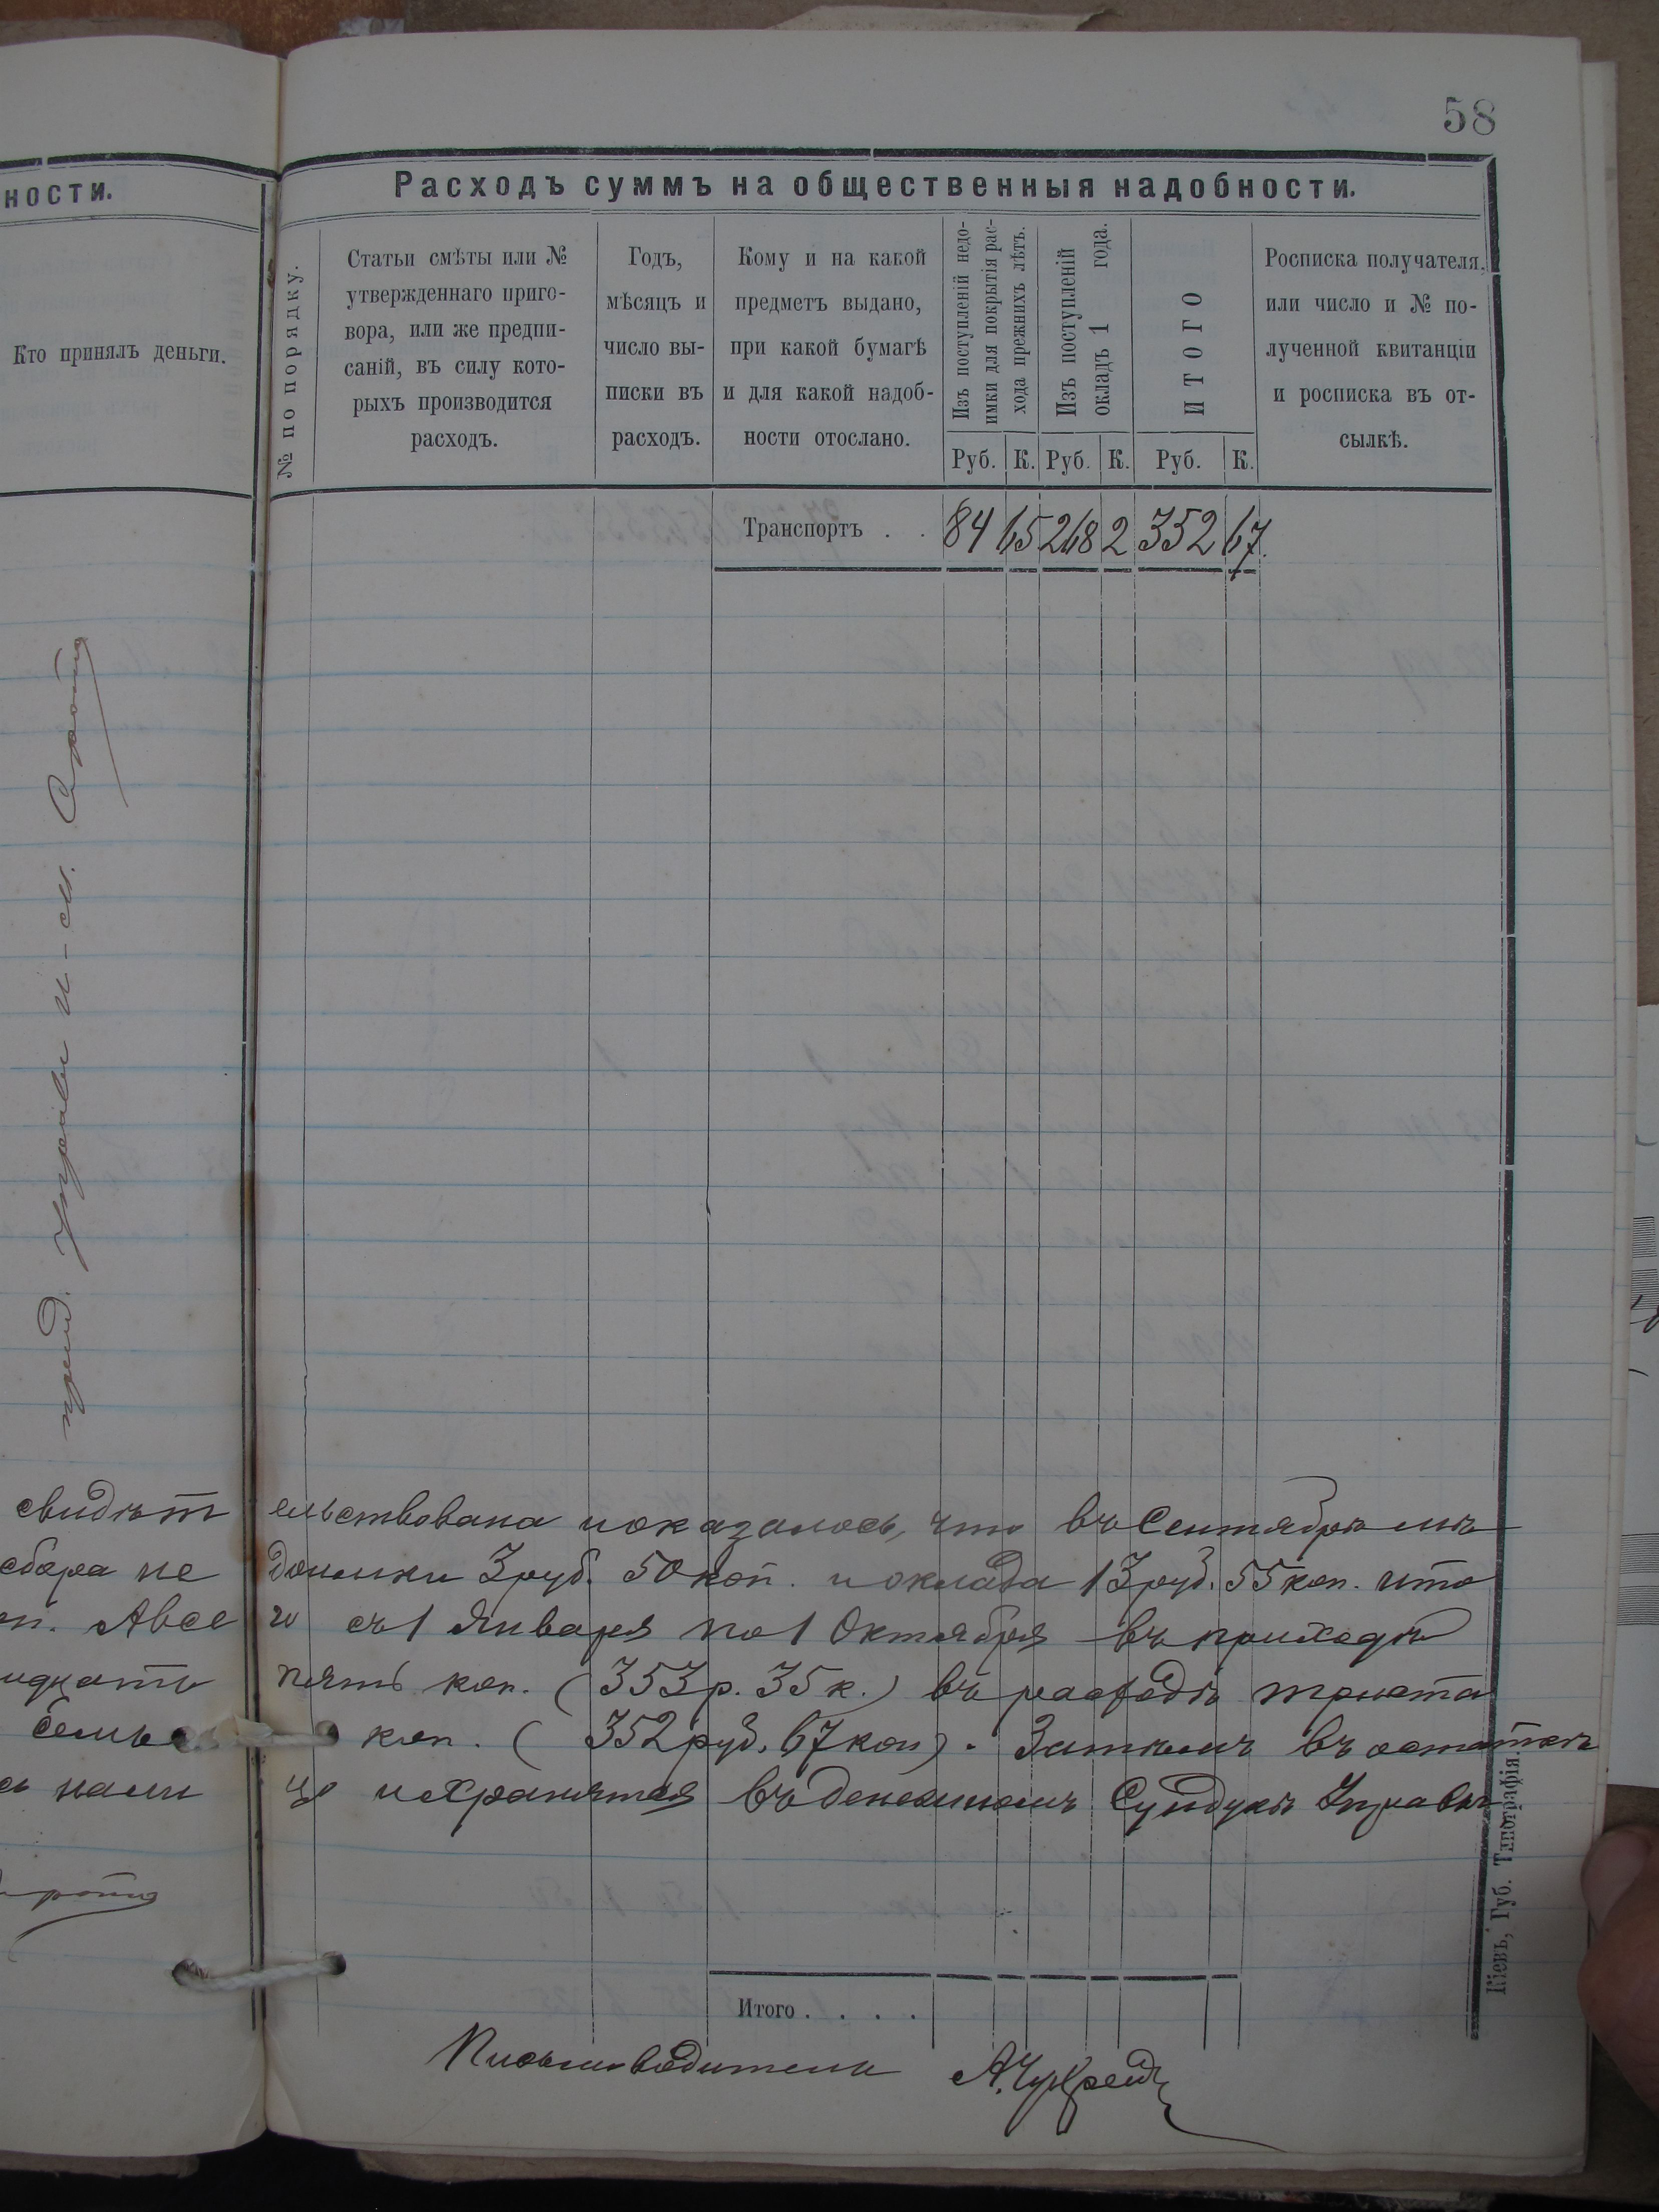 58
ности.
Кто принялъ деньги.
Расходъ суммъ на общественныя надобности.
№ по порядку.
Статьи смѣты или №
утвержденнаго приго-
вора, или же предпи-
саній, въ силу кото-
рыхъ производится
расходъ.
Годъ,
мѣсяцъ и
число вы-
писки въ
расходъ.
Кому и на какой
предметъ выдано,
при какой бумагѣ
и для какой надоб-
ности отослано.
Изъ поступленій недо-
имки для покрытія рас-
хода прежнихъ лѣтъ.
Изъ поступленій
окладъ 1 года.
ИТОГО
Росписка получателя,
или число и № по-
лученной квитанціи
и росписка въ от-
сылкѣ.
Руб. К. Руб. К. Руб. К.
Транспортъ . . 84 65 268 2 352 67.
свидѣт ельствована и оказалось, что въ Сентябрѣ м-цѣ
сбора не доимки 3 руб. 50 коп. и оклада 13 руб. 55 коп. что
Авсе го съ 1 Января по 1 Октября въ приходѣ
идцать пять коп. (353 р. 35 к.) въ расходѣ триста
семь коп. (352 руб. 67 коп). Затѣмъ въ остаткѣ
нали це и хранятся въ денежномъ Сундукѣ Управы
Итого . . . .
Письмоводитель
Кіевъ, Губ. Типографія.